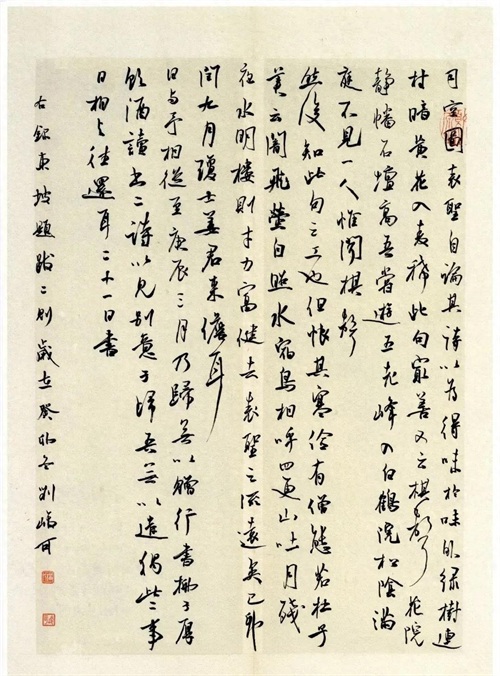 司空圖表聖自論其詩以為得味於味外綠樹連
村暗黃花入麥稀此句最善又云棋聲花院
靜幡石壇高吾嘗遊五老峰入白鶴院松陰滿
庭不見一人惟聞棋聲
然後知此句之工也但恨其寒儉有僧態若杜子
美云闇飛螢自照水宿鳥相呼四更山吐月殘
夜水明樓則才力富健去表聖之流遠矣己卯
閏九月瓊士姜君來儋耳
日與予相從至庚辰三月乃歸無以贈行書柳子厚
飲酒讀書二詩以見別意子歸吾無以遣獨此事
日相與往還耳二十一日書
右錄東坡題跋二則歲在癸卯冬劉